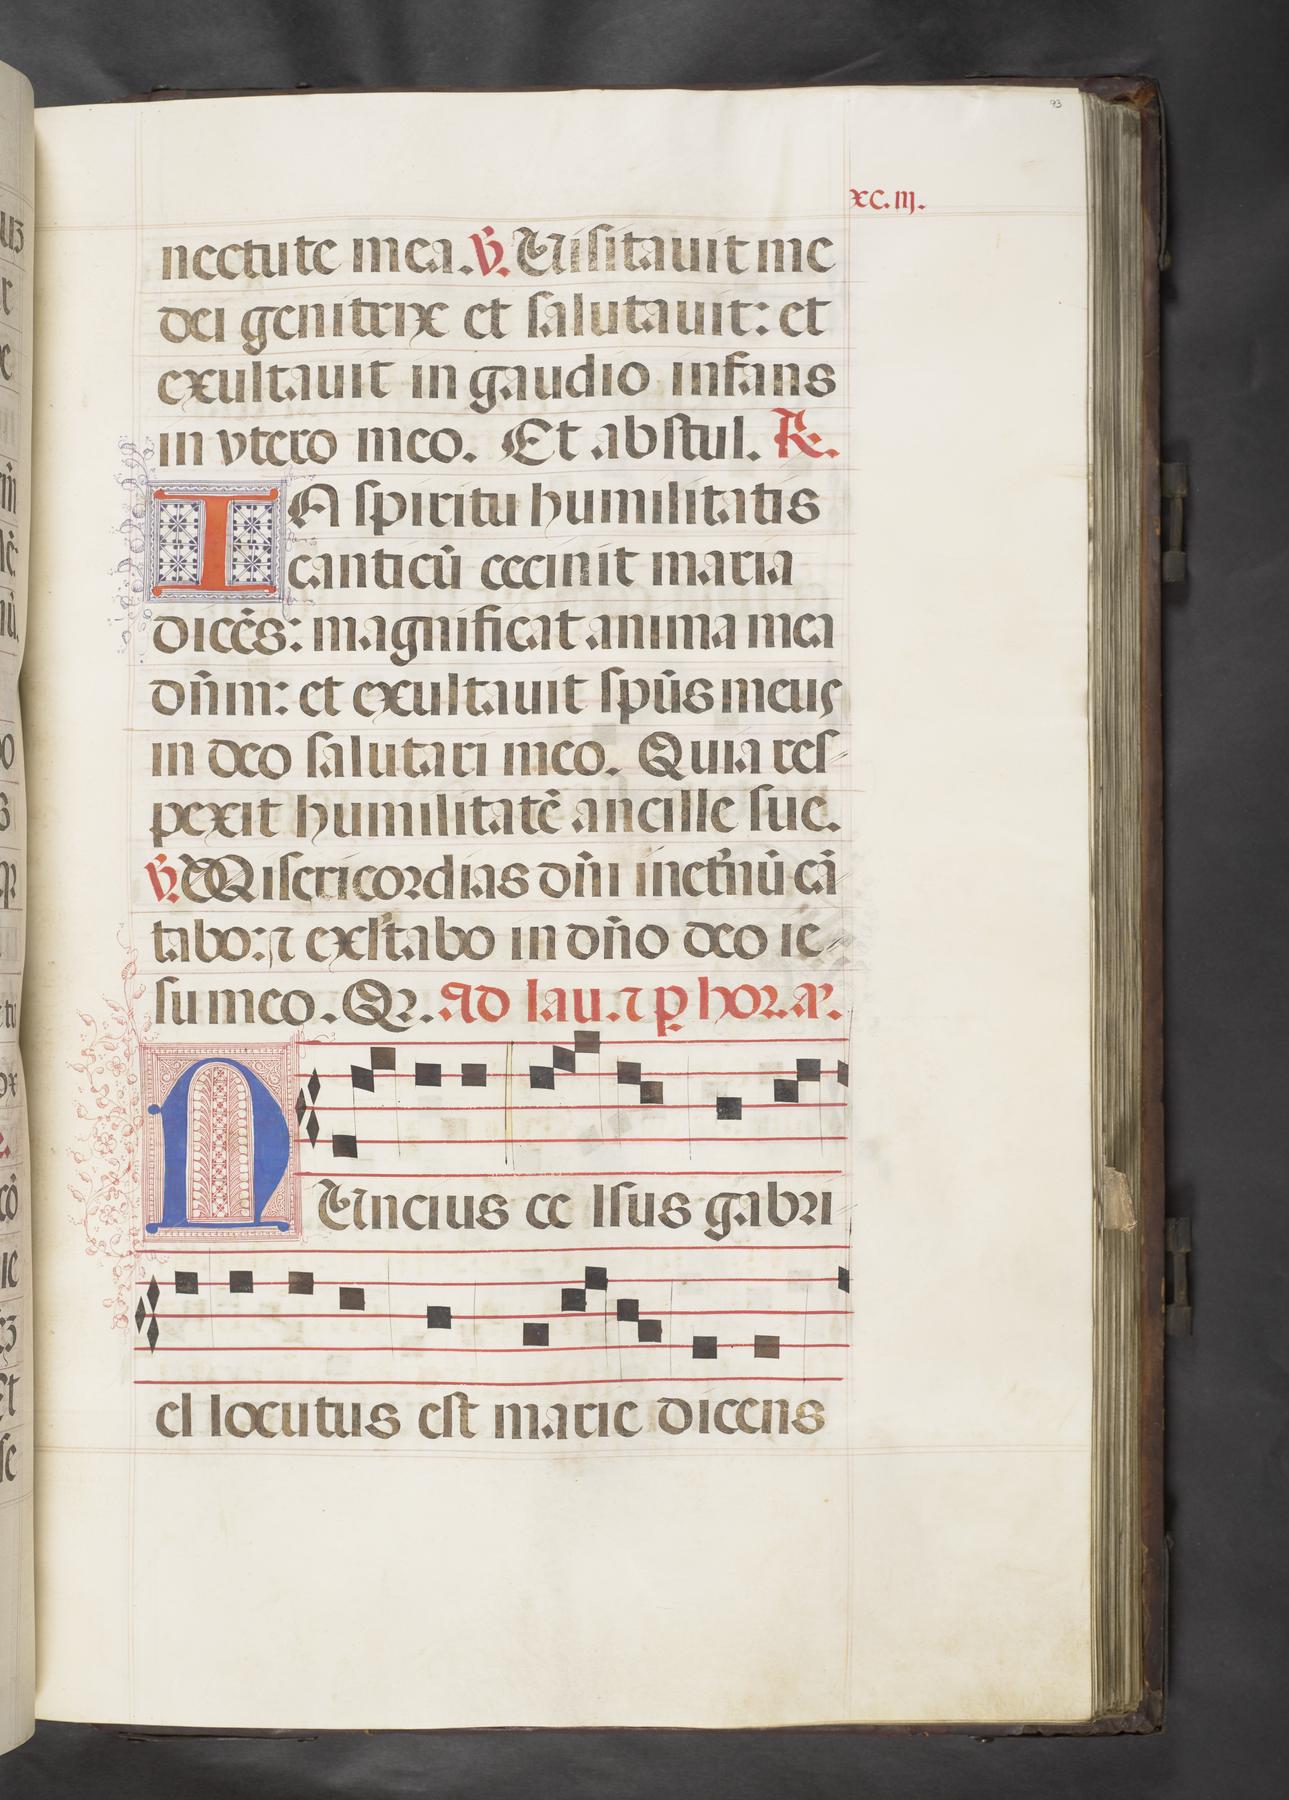 93
xc.iij.
nectute mea. ℣. Uisitauit me
dei genitrix et salutauit: et
exultauit in gaudio infans
in vtero meo. Et abstul. ℟.
IN spiritu humilitatis
canticū cecinit maria
dicēs: magnificat anima mea
dn̄m: et exultauit spūs meus
in deo salutari meo. Quia res-
pexit humilitatē ancille sue.
℣. Misericordias dn̄i inet̄nū cā
tabo: ⁊ exl̄tabo in dn̄o deo ie-
su meo. Qr. ad lau. ⁊ ꝑ horas.
NUncius celsus gabri
el locutus est marie dicens